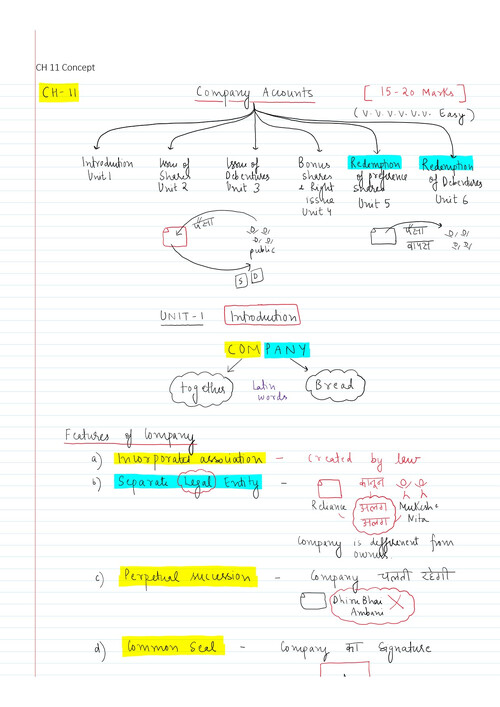 CH 11 Concept
CH-11 Company Accounts [15-20 Marks]
(V.V.V.V.V.V. Easy)
Introduction Unit 1
Issue of Shares Unit 2
Issue of Debentures Unit 3
Bonus shares & Right issue Unit 4
Redemption of preference shares Unit 5
Redemption of Debentures Unit 6
पैसा
public
S D
पैसा
वापस
UNIT-1 Introduction
COMPANY
together Latin words Bread
Features of Company
a) Incorporated association - Created by law
b) Separate Legal Entity - कानून
Reliance अलग अलग Mukesh & Nita
Company is different from owners
c) Perpetual succession - Company चलती रहेगी
Dhiru Bhai Ambani X
d) Common Seal - Company का signature